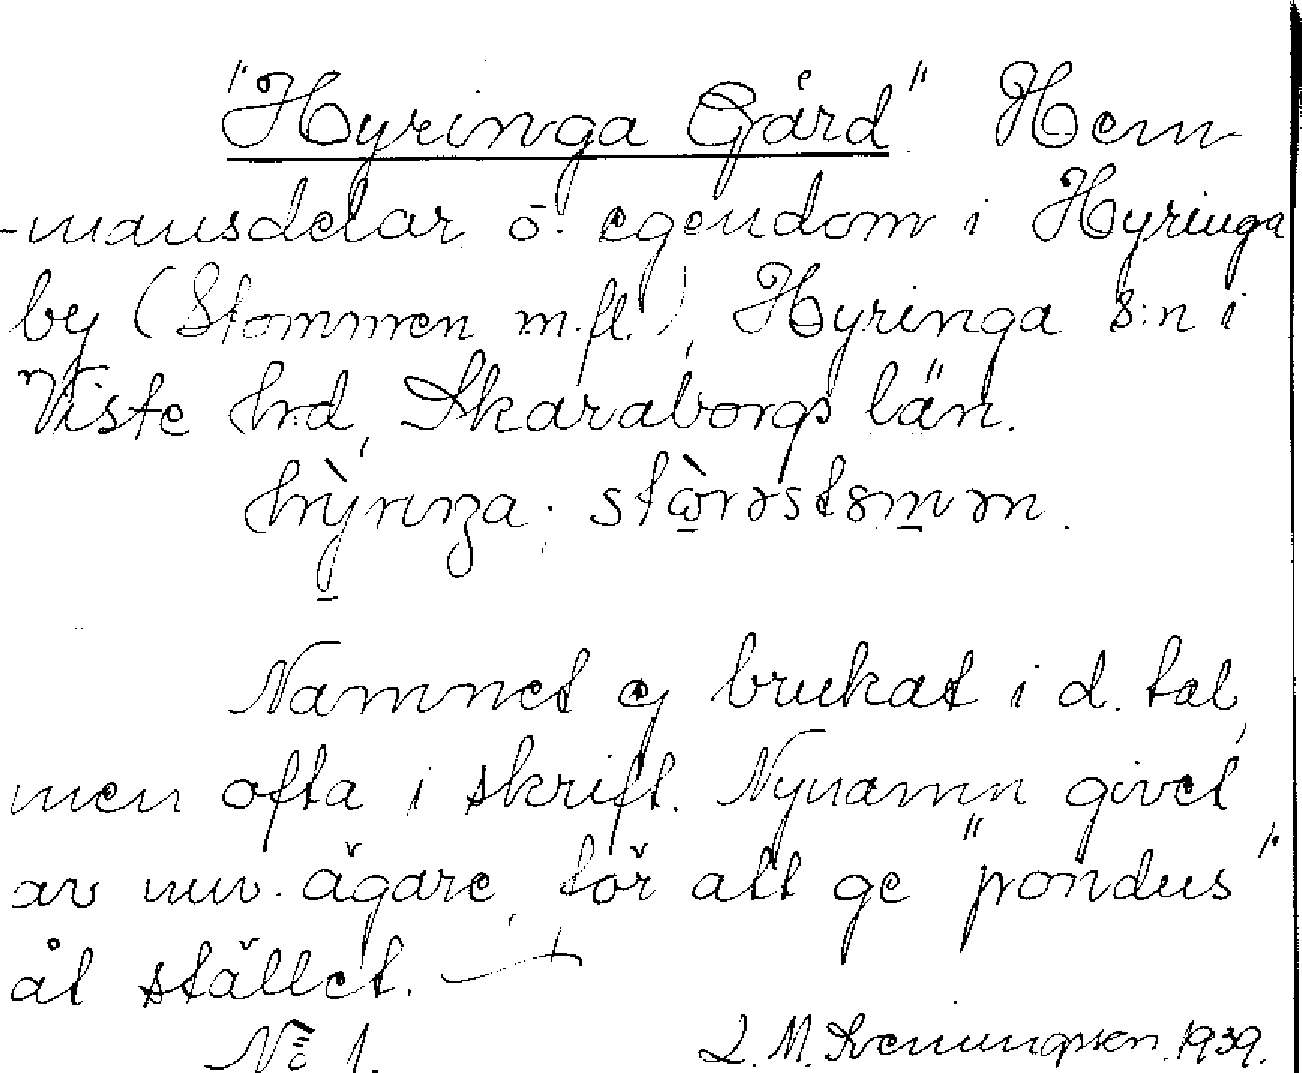 "Hyringa Gård". Hem
-mansdelar o. egendom i Hyringa
by (Stommen m.fl.), Hyringa s:n i
Viste hrd, Skaraborgs län.
Namnet ej brukat i d. tal,
men ofta i skrift. Nynamn givet
av nuv. ägare, för att ge "pondus"
åt stället.
No 1. L. M. Svenungsson. 1939.